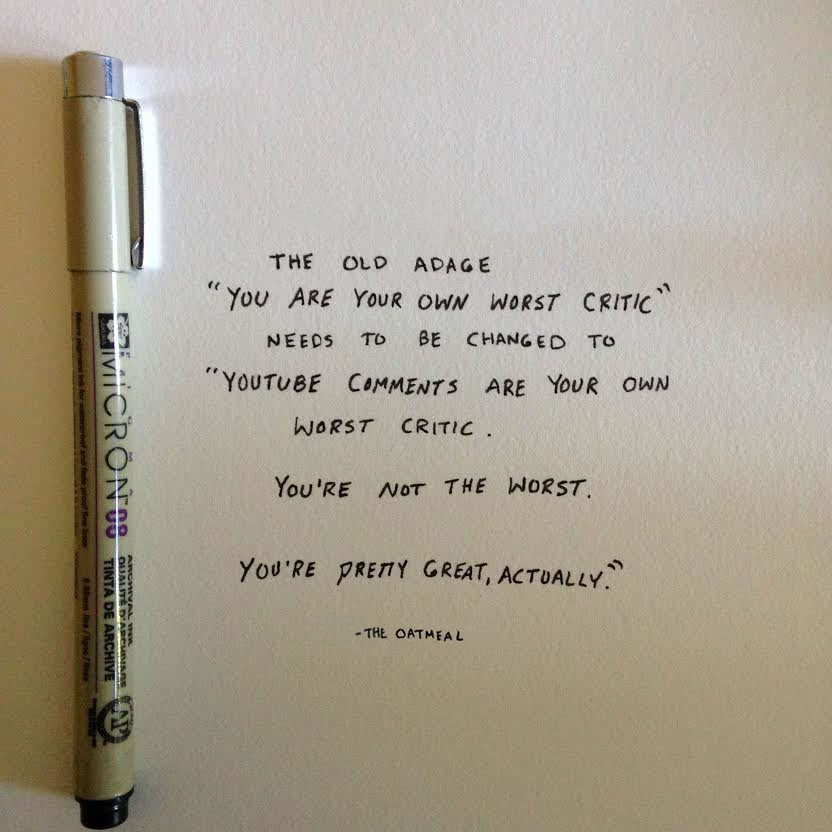 THE OLD ADAGE
"YOU ARE YOUR OWN WORST CRITIC"
NEEDS TO BE CHANGED TO
"YOUTUBE COMMENTS ARE YOUR OWN
WORST CRITIC.
YOU'RE NOT THE WORST.
YOU'RE PRETTY GREAT, ACTUALLY."
-THE OATMEAL
MICRON™ 08
ARCHIVAL INK
QUALITÉ D'ARCHIVAGE
TINTA DE ARCHIVE
AP